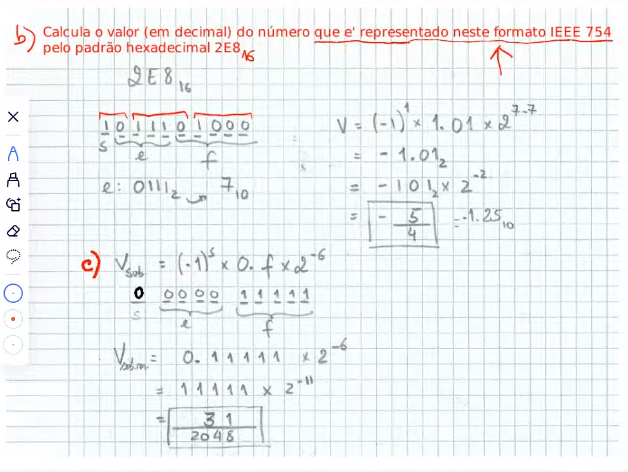 b) Calcula o valor (em decimal) do número que e' representado neste formato IEEE 754
pelo padrão hexadecimal 2E8₁₆
2E8₁₆
1 0 1 1 1 0 1 0 0 0
s e f
e: 0111₂ 7₁₀
V = (-1)¹ × 1.01 × 2⁷⁻⁷
= - 1.01₂
= - 101₂ × 2⁻²
= - 5/4 = -1.25₁₀
c) V_sub = (-1)ˢ × 0.f × 2⁻⁶
0 0000 11111
s e f
V_sub.m = 0.11111 × 2⁻⁶
= 11111 × 2⁻¹¹
= 31/2048